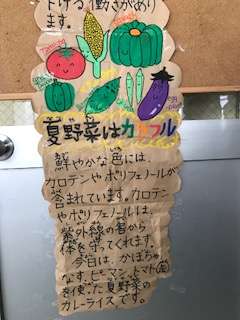 下げる働きがあり
ます。
夏野菜はカラフル
鮮やかな色には、
カロテンやポリフェノールが
含まれています。カロテン
やポリフェノールは、
紫外線の害から
体を守ってくれます。
今日は、かぼちゃ、
なす、ピーマン、トマト(缶)
を使った夏野菜の
カレーライスです。